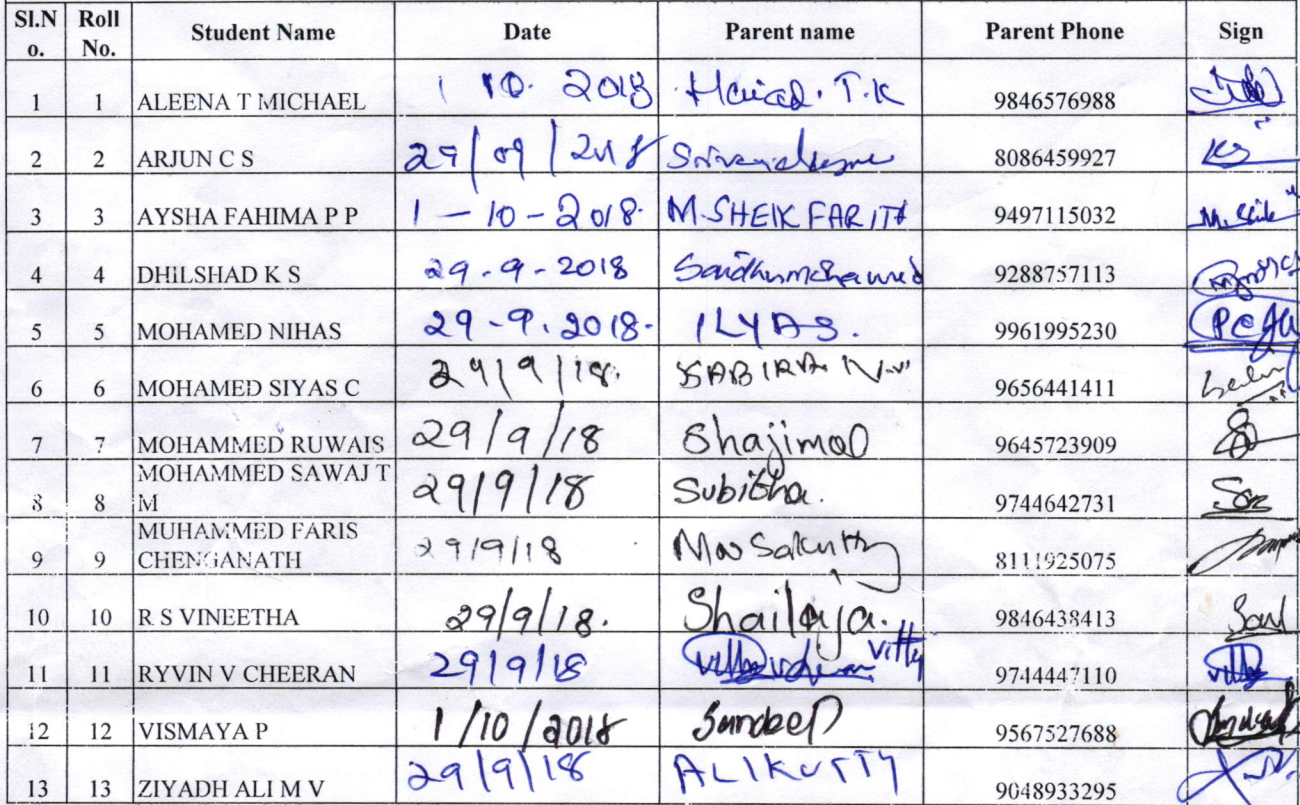 Sl.N o. Roll No. Student Name Date Parent name Parent Phone Sign
1 1 ALEENA T MICHAEL 1 10. 2018 T.K 9846576988
2 2 ARJUN C S 29/09/2018 8086459927 KS
3 3 AYSHA FAHIMA P P 1-10-2018. M.SHEIK FARITH 9497115032 M. Seik
4 4 DHILSHAD K S 29-9-2018 Saidhumohamed 9288757113
5 5 MOHAMED NIHAS 29-9.2018. ILYAS. 9961995230
6 6 MOHAMED SIYAS C 29/9/18. SABIRA 9656441411
7 7 MOHAMMED RUWAIS 29/9/18 Shajimol 9645723909
8 8 MOHAMMED SAWAJ T M 29/9/18 Subitha. 9744642731
9 9 MUHAMMED FARIS CHENGANATH 29/9/18 Mossakutty 8111925075
10 10 R S VINEETHA 29/9/18. Shailaja. 9846438413
11 11 RYVIN V CHEERAN 29/9/18 Vitty 9744447110
12 12 VISMAYA P 1/10/2018 Sandeep 9567527688
13 13 ZIYADH ALI M V 29/9/18 ALIKUTTY 9048933295